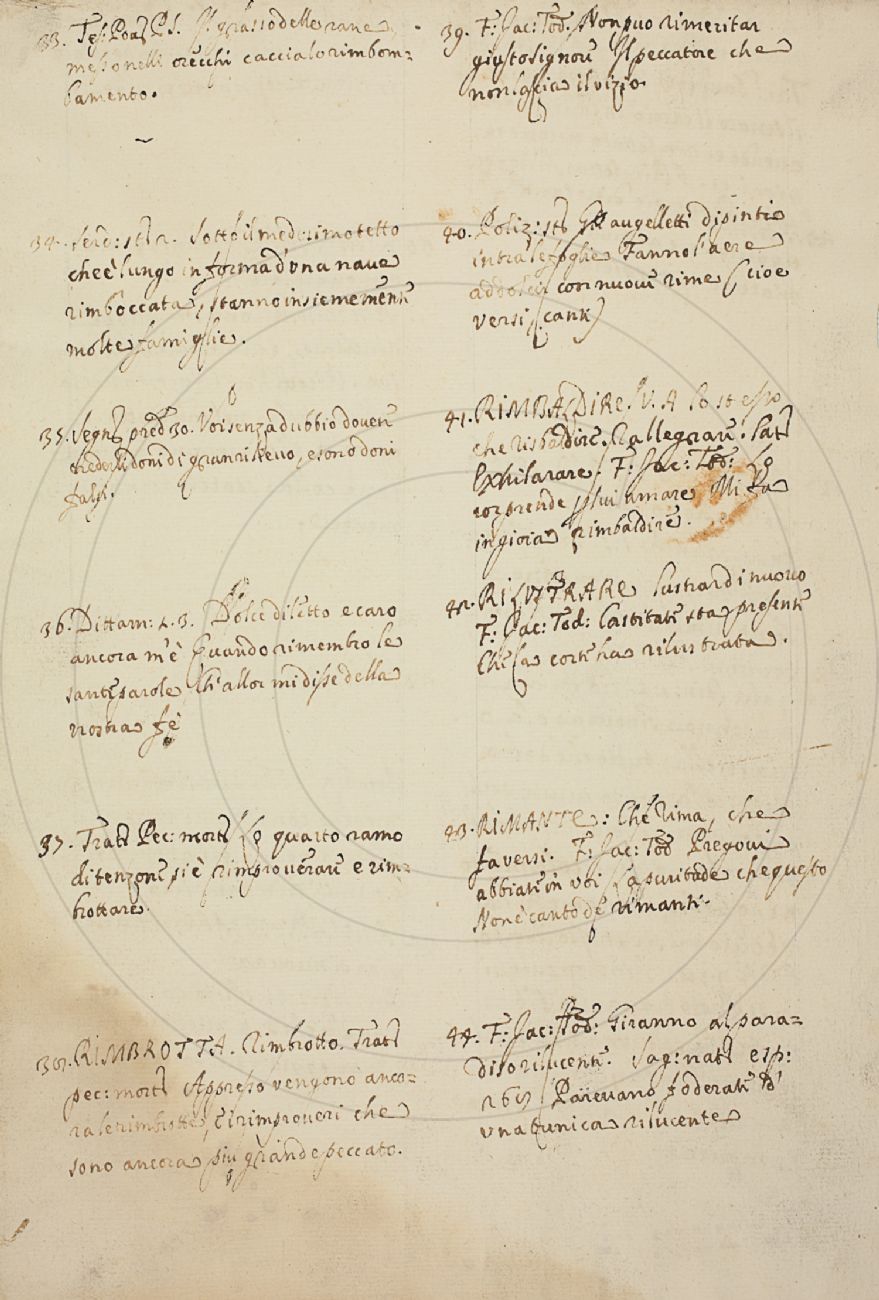 33. Tes: Pov: P.S. Il grasso delle rane
messo nelli orecchi caccia lo rimbom=
bamento.
34. Serd: st: 2. Sotto il medesimo tetto
che è lungo in forma d'una nave
rimboccata, stanno insiememente
molte famiglie.
35. Segn: pred: 30. Voi senza dubbio dovete
creder li doni di gran rilievo, e sono doni
falsi.
36. Dittam: 2. 3. Dolce diletto e caro
ancora m'è Quando rimembro le
sante parole Che allor mi disse della
nostra fè
37. Tratt: Pec: mort: Lo quarto ramo
di tenzone, si è rimproverare e rim=
brottare.
38. RIMBROTTA. Rimbrotto. Tratt:
pec: mort: Appresso vengono anco=
ra le rimbrotte, e i rimproveri che
sono ancora più grande peccato.
39. F: Jac: Tod: Non può rimeritar
giusto signore Il peccatore che
non lascia il vizio.
40. Poliz: st: Gli augelletti dipinti
intra le foglie Fanno l'aere
addolcir con nuove rime (cioè
versi, canti)
41. RIMBALDIRE. V. A. lo stesso
che risbaldire. Rallegrare. Lat:
Exhilarare. F: Jac: Tod: Lo
cor prende plui amare Mi fa
in gioia rimbaldire.
42. RILUSTRARE Lustrar di nuovo
F: Jac: Tod: Castitate sta presente
Che la corte ha rilustrata.
43. RIMANTE: Che rima, che
fa versi. F: Jac: Tod: Pregovi
abbiate in voi la puritade che questo
Non è canto de rimanti.
44. F: Jac: Tod: Giranno al para=
diso rilucenti. Sag: nat: esp:
Parevano foderati d'
una tunica rilucente